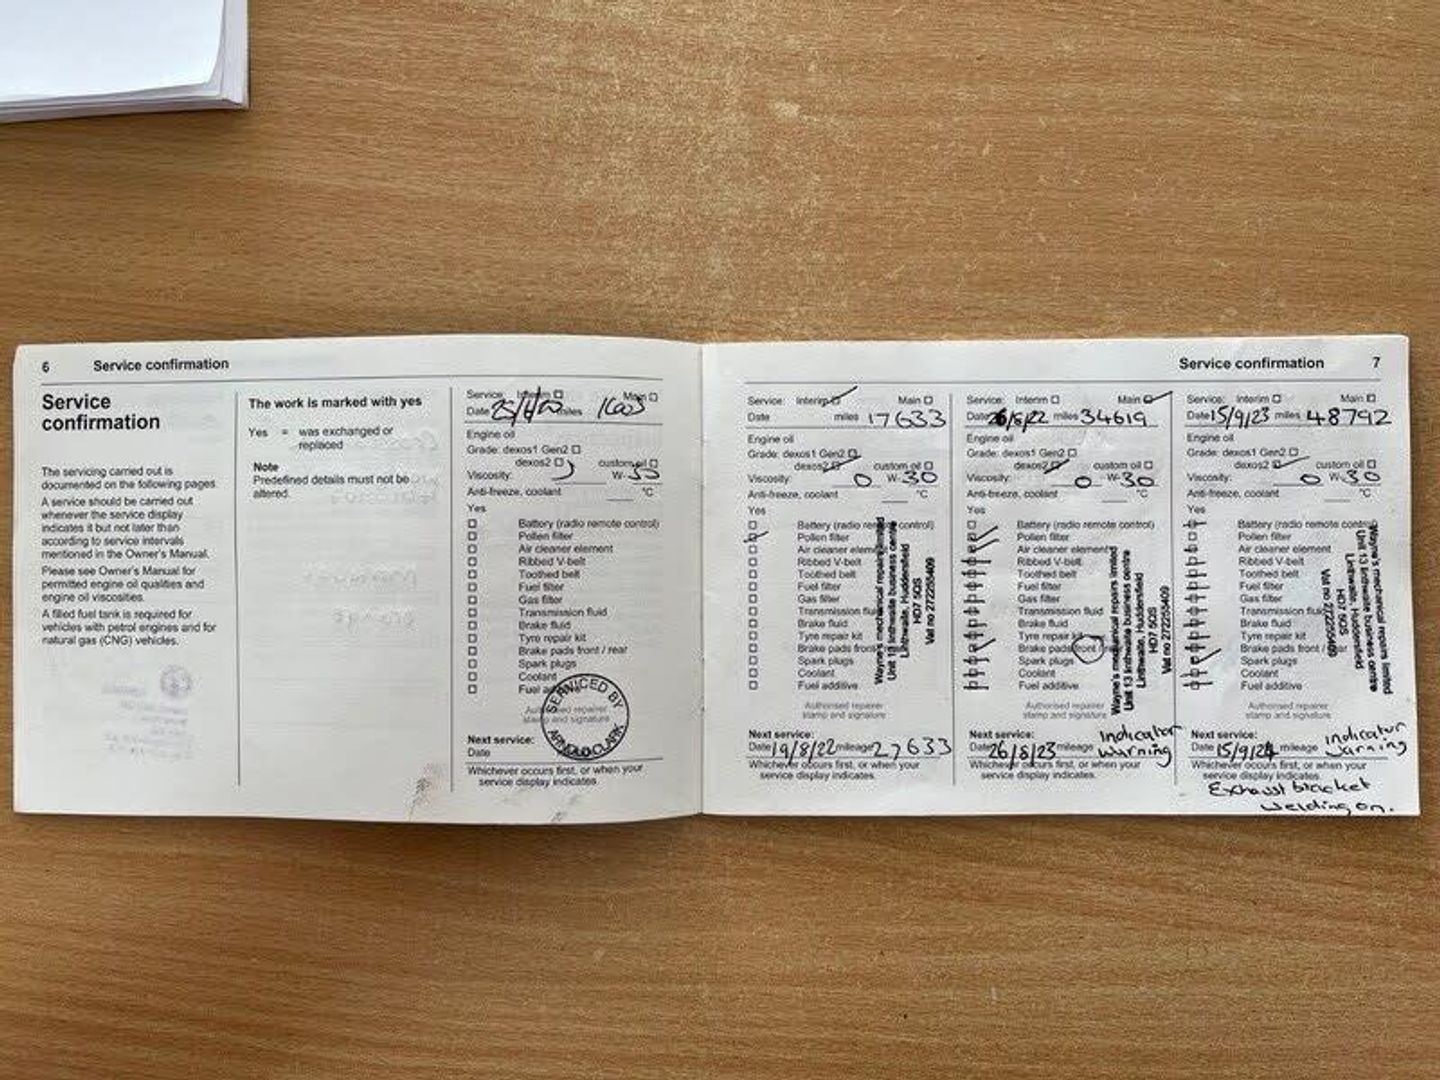 6 Service confirmation
Service
confirmation
The servicing carried out is
documented on the following pages.
A service should be carried out
whenever the service display
indicates it but not later than
according to service intervals
mentioned in the Owner's Manual.
Please see Owner's Manual for
permitted engine oil qualities and
engine oil viscosities.
A filled fuel tank is required for
vehicles with petrol engines and for
natural gas (CNG) vehicles.
The work is marked with yes
Yes = was exchanged or
replaced
Note
Predefined details must not be
altered.
Service: Interim Main
Date miles
Engine oil
Grade: dexos1 Gen2
dexos2 custom oil
Viscosity: W-30
Anti-freeze, coolant °C
Yes
Battery (radio remote control)
Pollen filter
Air cleaner element
Ribbed V-belt
Toothed belt
Fuel filter
Gas filter
Transmission fluid
Brake fluid
Tyre repair kit
Brake pads front / rear
Spark plugs
Coolant
Fuel additive
Authorised repairer
stamp and signature
SERVICED BY
ARNOLD CLARK
Next service:
Date
Whichever occurs first, or when your
service display indicates.
Service confirmation 7
Service: Interim Main
Date miles 17633
Engine oil
Grade: dexos1 Gen2
dexos2 custom oil
Viscosity: 0 W-30
Anti-freeze, coolant °C
Yes
Battery (radio remote control)
Pollen filter
Air cleaner element
Ribbed V-belt
Toothed belt
Fuel filter
Gas filter
Transmission fluid
Brake fluid
Tyre repair kit
Brake pads front
Spark plugs
Coolant
Fuel additive
Wayne's mechanical repairs limited
Unit 13 linthwaite business centre
Linthwaite, Huddersfield
HD7 5QS
Vat no 272255409
Authorised repairer
stamp and signature
Next service:
Date 19/8/22 mileage 27633
Whichever occurs first, or when your
service display indicates.
Service: Interim Main
Date 26/8/22 miles 34619
Engine oil
Grade: dexos1 Gen2
dexos2 custom oil
Viscosity: 0 W-30
Anti-freeze, coolant °C
Yes
Battery (radio remote control)
Pollen filter
Air cleaner element
Ribbed V-belt
Toothed belt
Fuel filter
Gas filter
Transmission fluid
Brake fluid
Tyre repair kit
Brake pads front / rear
Spark plugs
Coolant
Fuel additive
Wayne's mechanical repairs limited
Unit 13 linthwaite business centre
Linthwaite, Huddersfield
HD7 5QS
Vat no 272255409
Authorised repairer
stamp and signature
Next service: Indicator
Date 26/8/23 mileage Warning
Whichever occurs first, or when your
service display indicates.
Service: Interim Main
Date 15/9/23 miles 48792
Engine oil
Grade: dexos1 Gen2
dexos2 custom oil
Viscosity: 0 W-30
Anti-freeze, coolant °C
Yes
Battery (radio remote control)
Pollen filter
Air cleaner element
Ribbed V-belt
Toothed belt
Fuel filter
Gas filter
Transmission fluid
Brake fluid
Tyre repair kit
Brake pads front / rear
Spark plugs
Coolant
Fuel additive
Wayne's mechanical repairs limited
Unit 13 linthwaite business centre
Linthwaite, Huddersfield
HD7 5QS
Vat no 272255409
Authorised repairer
stamp and signature
Next service: indicator
Date 15/9/24 mileage warning
Whichever occurs first, or when your
service display indicates.
Exhaust bracket
welding on.